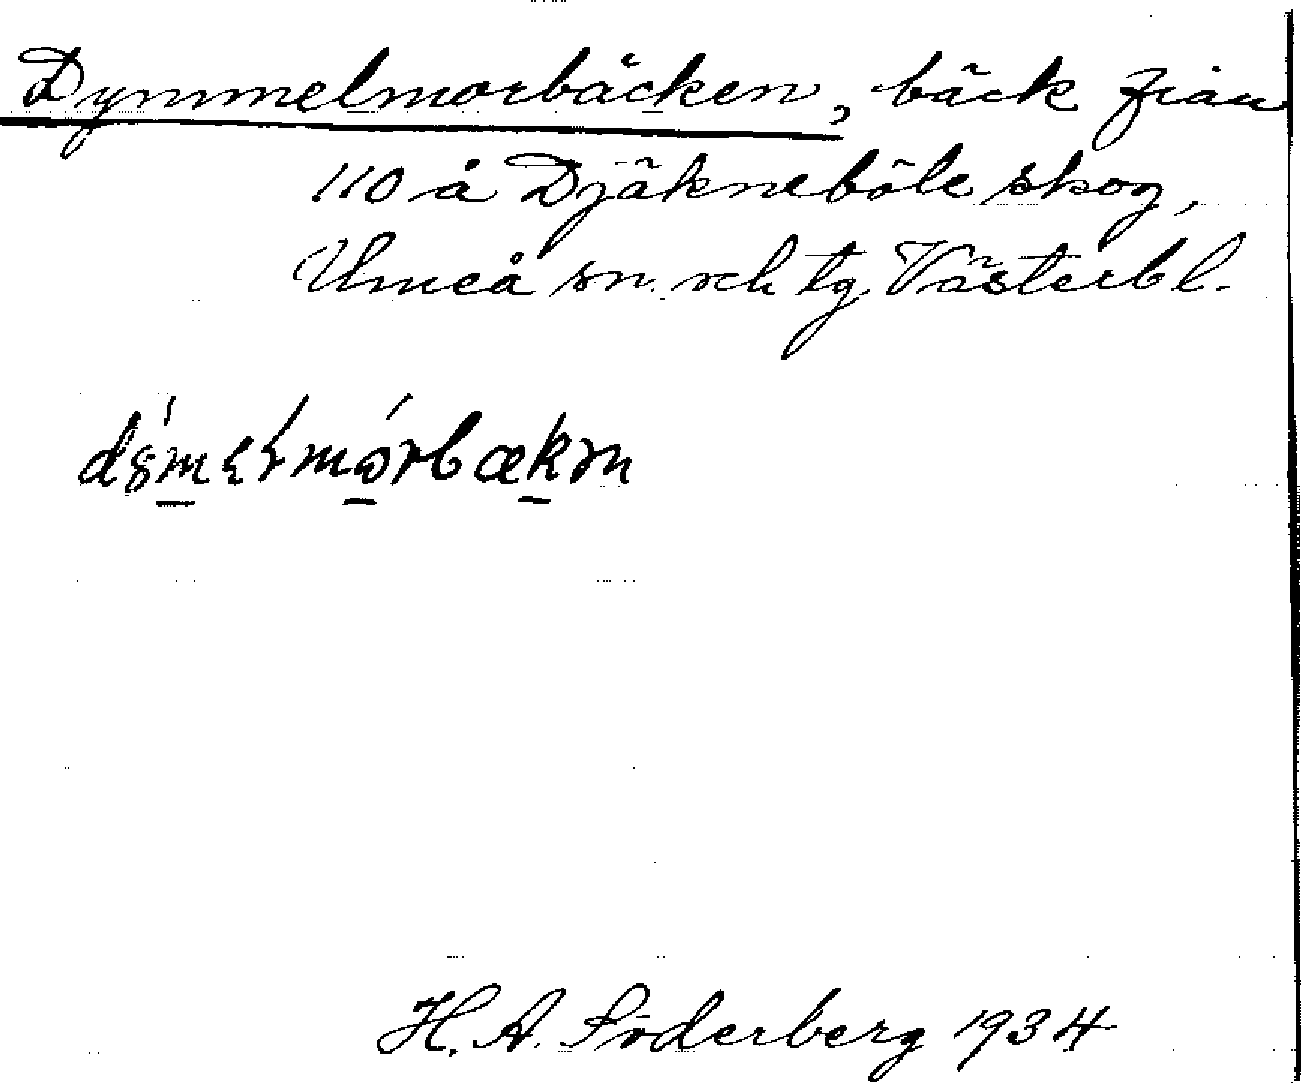 Dymmelmorbäcken, bäck från
110 å Djäkneböle skog,
Umeå sn. och tg Västerbl.
H. A. Söderberg 1934